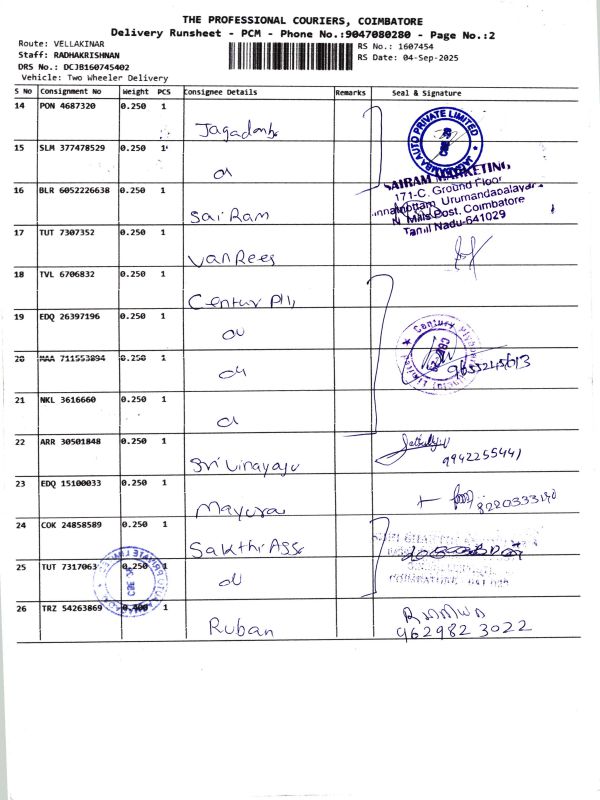 THE PROFESSIONAL COURIERS, COIMBATORE
Delivery Runsheet - PCM - Phone No.:9047080280 - Page No.:2
Route: VELLAKINAR
RS No.: 1607454
Staff: RADHAKRISHNAN
RS Date: 04-Sep-2025
DRS No.: DCJB160745402
Vehicle: Two Wheeler Delivery
S No Consignment No Weight PCS Consignee Details Remarks Seal & Signature
14 PON 4687320 0.250 1
AUTO PRIVATE LIMITED
15 SLM 377478529 0.250 1
SAIRAM MARKETING,
171-C, Ground Floor
Urumandapalayam
N. Mills Post, Coimbatore
Tamil Nadu-641029
16 BLR 6052226638 0.250 1
Sai Ram
17 TUT 7307352 0.250 1
Van Rees
18 TVL 6706832 0.250 1
Centur Ply
19 EDQ 26397196 0.250 1
Century
20 MAA 711553894 0.250 1
21 NKL 3616660 0.250 1
22 ARR 30501848 0.250 1
Sri Vinayaga
9942255441
23 EDQ 15100033 0.250 1
Mayura
24 COK 24858589 0.250 1
Sakthi Ass
25 TUT 7317063 0.250 1
26 TRZ 54263869 0.400 1
Ruban
9629823022